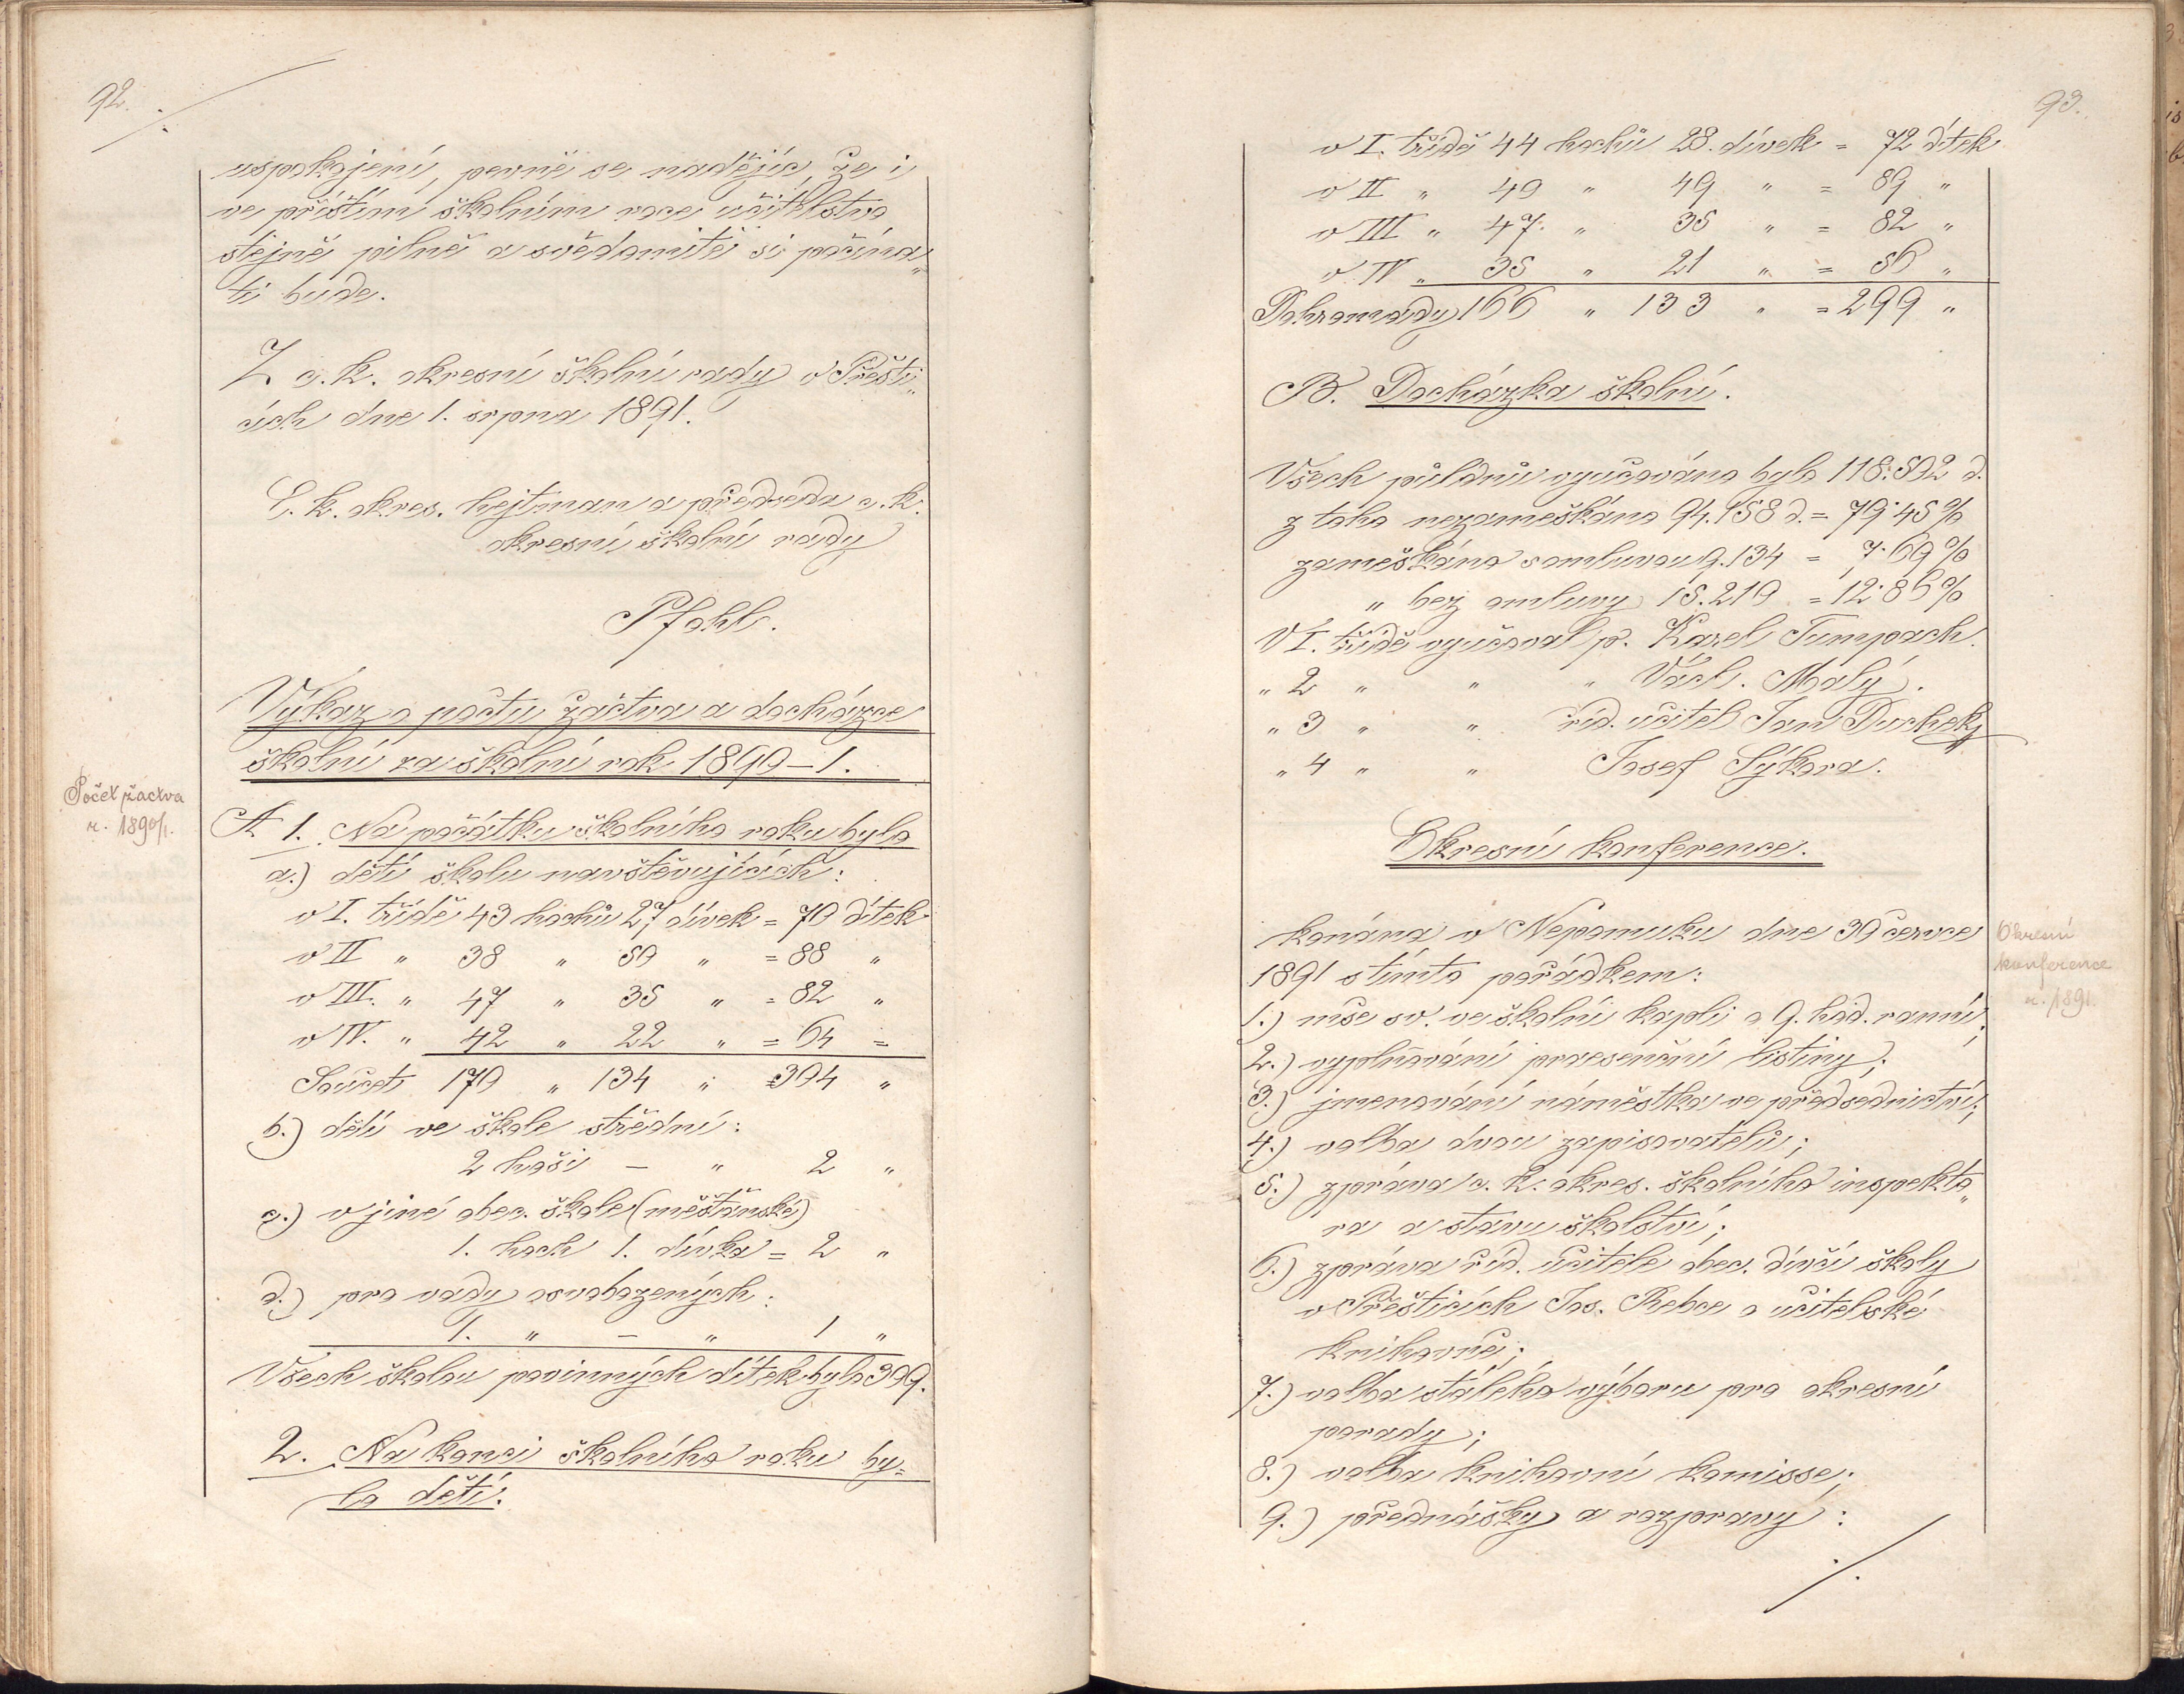 92.
uspokojení, pevně se nadějíc, že i
ve příštím školním roce učitelstvo
stejně pilně a svědomitě si počína„
ti bude.
Z c. k. okresní školní rady v Přešti„
cích dne 1. srpna 1891.
C. k. okres. hejtman a předseda c. k.
okresní školní rady
Pfohl.
Výkaz o počtu žáctva a docházce
školní za školní rok 1890–1.
Počet žactva
r. 1890/1.
A 1. Na počátku školního roku bylo
a.) dětí školu navštěvujících:
v I. třídě 43 hochů 27 dívek = 70 dítek
v II „ 38 „ 50 „ = 88 „
v III. „ 47 „ 35 „ = 82 „
v IV. „ 42 „ 22 „ = 64 =
Součet 170 „ 134 „ =304 „
b.) dětí ve škole střední:
2 hoši – „ 2 „
c.) v jiné obec. škole (měšťanské)
1. hoch 1. dívka = 2 „
d.) pro vady osvobozených:
1. „ – „ 1 „
Všech školou povinných dítek bylo 309.
2. Na konci školního roku by=
lo dětí.
93.
v I. třídě 44 hochů 28. dívek = 72 dítek
v II „ 40 „ 49 „ = 89 „
v III „ 47. „ 35 „ = 82 „
v IV „ 35 „ 21 „ = 56 „
Dohromady 166 „ 133 „ = 299 „
B. Docházka školní.
Všech půldnů vyučováno bylo 118.502 d.
z toho nezameškáno 94.158 d. = 79·45%
zameškáno s omluvou 9.134 = 7·69%
„ bez omluvy 15.210 = 12·86%
V I. třídě vyučoval p. Karel Tumpach.
„ 2 „ „ „ Václ. Malý.
„ 3 „ „ říd. učitel Jan Duchek
„ 4 „ „ Josef Sýkora.
Okresní konference.
konána v Nepomuku dne 30 července
Okresní
konference
r. 1891.
1891 s tímto pořádkem:
1.) mše sv. ve školní kapli o 9. hod. ranní;
2.) vyplňování praesenční listiny;
3.) jmenování náměstka ve předsednictví;
4.) volba dvou zapisovatelů;
5.) zpráva c. k. okres. školního inspekto„
ra o stavu školství;
6.) zpráva říd. učitele obec. dívčí školy
v Přešticích Jos. Rebce o učitelské
knihovně;
7.) volba stálého výboru pro okresní
porady;
8.) volba knihovní komisse;
9.) přednášky a rozpravy: